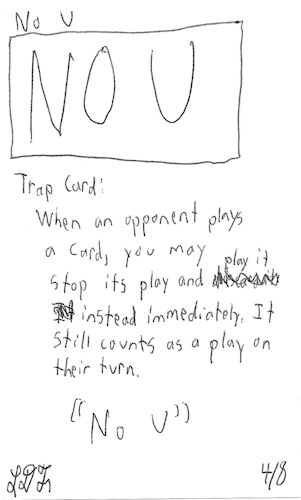 No U
NO U
Trap Card:
When an opponent plays
a card, you may
stop its play and play it
instead immediately. It
still counts as a play on
their turn.
"No U"
4/8